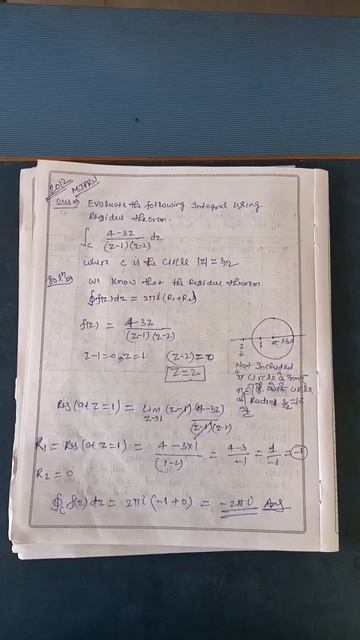 2012 MJPRU
Ques⇒ Evaluate the following Integral using
Residue theorem.
∫c 4-3z / (z-1)(z-2) dz
where c is the circle |z| = 3/2
Solⁿ⇒ we know that the Residue theorem
∮f(z)dz = 2πi(R₁+R₂)
f(z) = 4-3z / (z-1)(z-2)
z-1=0, z=1 (z-2)=0
z=2
Not Included
circle
Radius
Res(at z=1) = lim z→1 (z-1) (4-3z) / (z-1)(z-2)
R₁ = Res(at z=1) = 4-3×1 / (1-2) = 4-3 / -1 = 1 / -1 = -1
R₂ = 0
∮c f(z) dz = 2πi (-1+0) = -2πi Ans